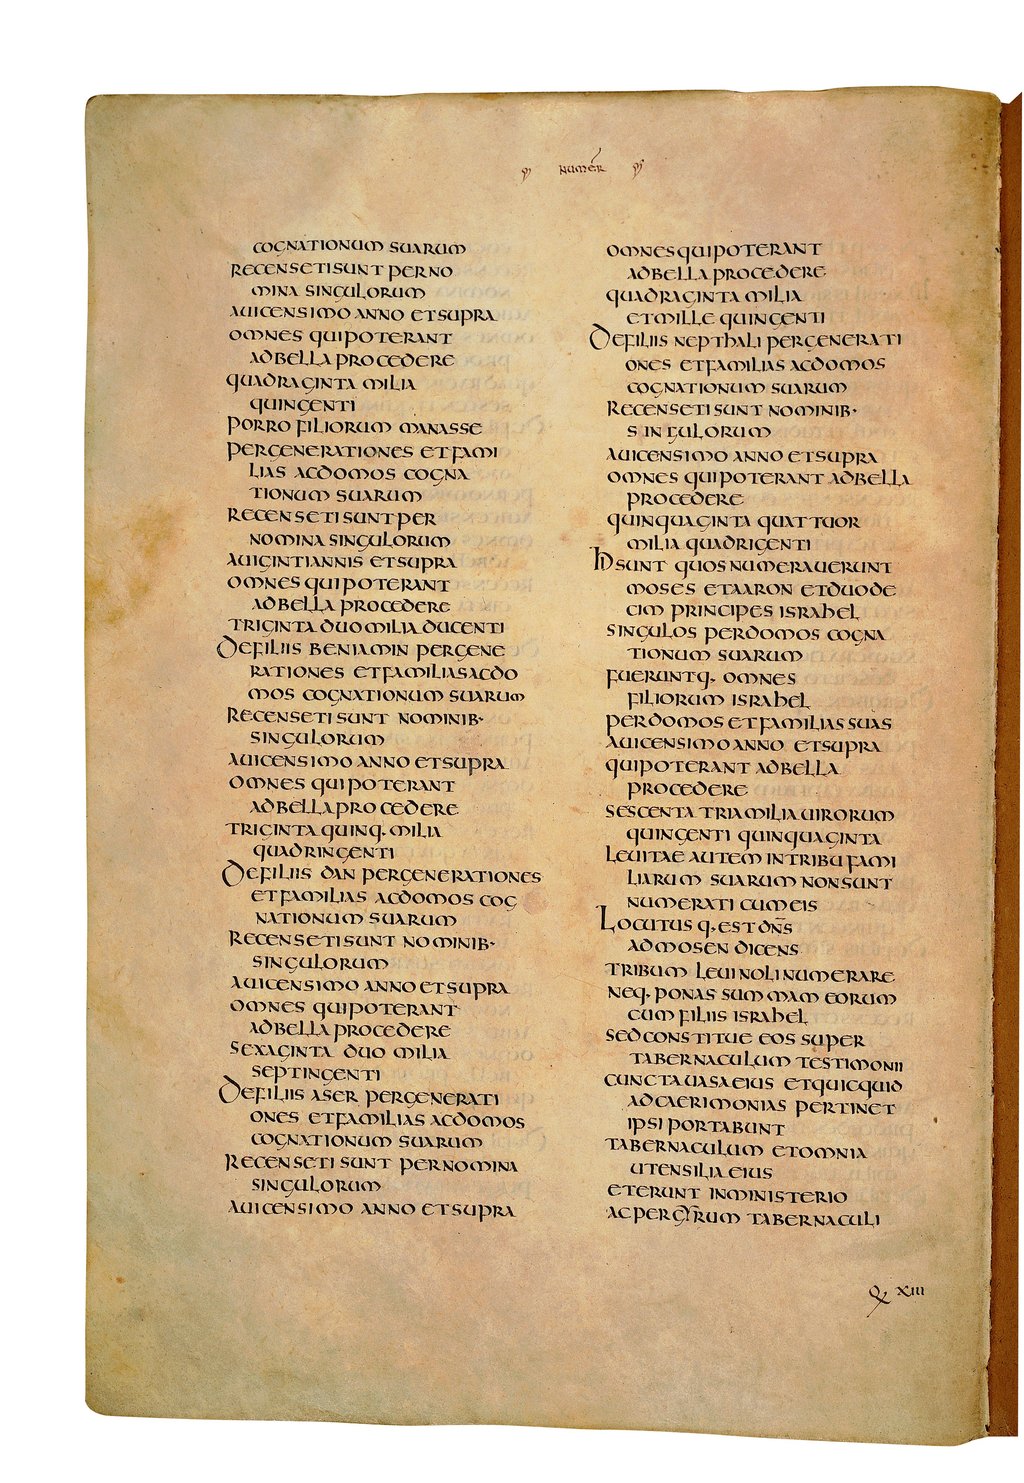 NUMER
COGNATIONUM SUARUM
RECENSETI SUNT PER NO
MINA SINGULORUM
A UICENSIMO ANNO ET SUPRA
OMNES QUI POTERANT
AD BELLA PROCEDERE
QUADRAGINTA MILIA
QUINGENTI
PORRO FILIORUM MANASSE
PER GENERATIONES ET FAMI
LIAS AC DOMOS COGNA
TIONUM SUARUM
RECENSETI SUNT PER
NOMINA SINGULORUM
A UIGINTI ANNIS ET SUPRA
OMNES QUI POTERANT
AD BELLA PROCEDERE
TRIGINTA DUO MILIA DUCENTI
DE FILIIS BENIAMIN PER GENE
RATIONES ET FAMILIAS AC DO
MOS COGNATIONUM SUARUM
RECENSETI SUNT NOMINIB·
SINGULORUM
A UICENSIMO ANNO ET SUPRA
OMNES QUI POTERANT
AD BELLA PROCEDERE
TRIGINTA QUINQ· MILIA
QUADRINGENTI
DE FILIIS DAN PER GENERATIONES
ET FAMILIAS AC DOMOS COG
NATIONUM SUARUM
RECENSETI SUNT NOMINIB·
SINGULORUM
A UICENSIMO ANNO ET SUPRA
OMNES QUI POTERANT
AD BELLA PROCEDERE
SEXAGINTA DUO MILIA
SEPTINGENTI
DE FILIIS ASER PER GENERATI
ONES ET FAMILIAS AC DOMOS
COGNATIONUM SUARUM
RECENSETI SUNT PER NOMINA
SINGULORUM
A UICENSIMO ANNO ET SUPRA
OMNES QUI POTERANT
AD BELLA PROCEDERE
QUADRAGINTA MILIA
ET MILLE QUINGENTI
DE FILIIS NEPTHALI PER GENERATI
ONES ET FAMILIAS AC DOMOS
COGNATIONUM SUARUM
RECENSETI SUNT NOMINIB·
SINGULORUM
A UICENSIMO ANNO ET SUPRA
OMNES QUI POTERANT AD BELLA
PROCEDERE
QUINQUAGINTA QUATTUOR
MILIA QUADRIGENTI
HI SUNT QUOS NUMERAUERUNT
MOSES ET AARON ET DUODE
CIM PRINCIPES ISRAHEL
SINGULOS PER DOMOS COGNA
TIONUM SUARUM
FUERUNTQ· OMNES
FILIORUM ISRAHEL
PER DOMOS ET FAMILIAS SUAS
A UICENSIMO ANNO ET SUPRA
QUI POTERANT AD BELLA
PROCEDERE
SESCENTA TRIA MILIA UIRORUM
QUINGENTI QUINQUAGINTA
LEUITAE AUTEM IN TRIBU FAMI
LIARUM SUARUM NON SUNT
NUMERATI CUM EIS
LOCUTUSQ· EST DN̅S
AD MOSEN DICENS
TRIBUM LEUI NOLI NUMERARE
NEQ· PONAS SUMMAM EORUM
CUM FILIIS ISRAHEL
SED CONSTITUE EOS SUPER
TABERNACULUM TESTIMONII
CUNCTA UASA EIUS ET QUICQUID
AD CAERIMONIAS PERTINET
IPSI PORTABUNT
TABERNACULUM ET OMNIA
UTENSILIA EIUS
ET ERUNT IN MINISTERIO
AC PER GYRUM TABERNACULI
Q XIII